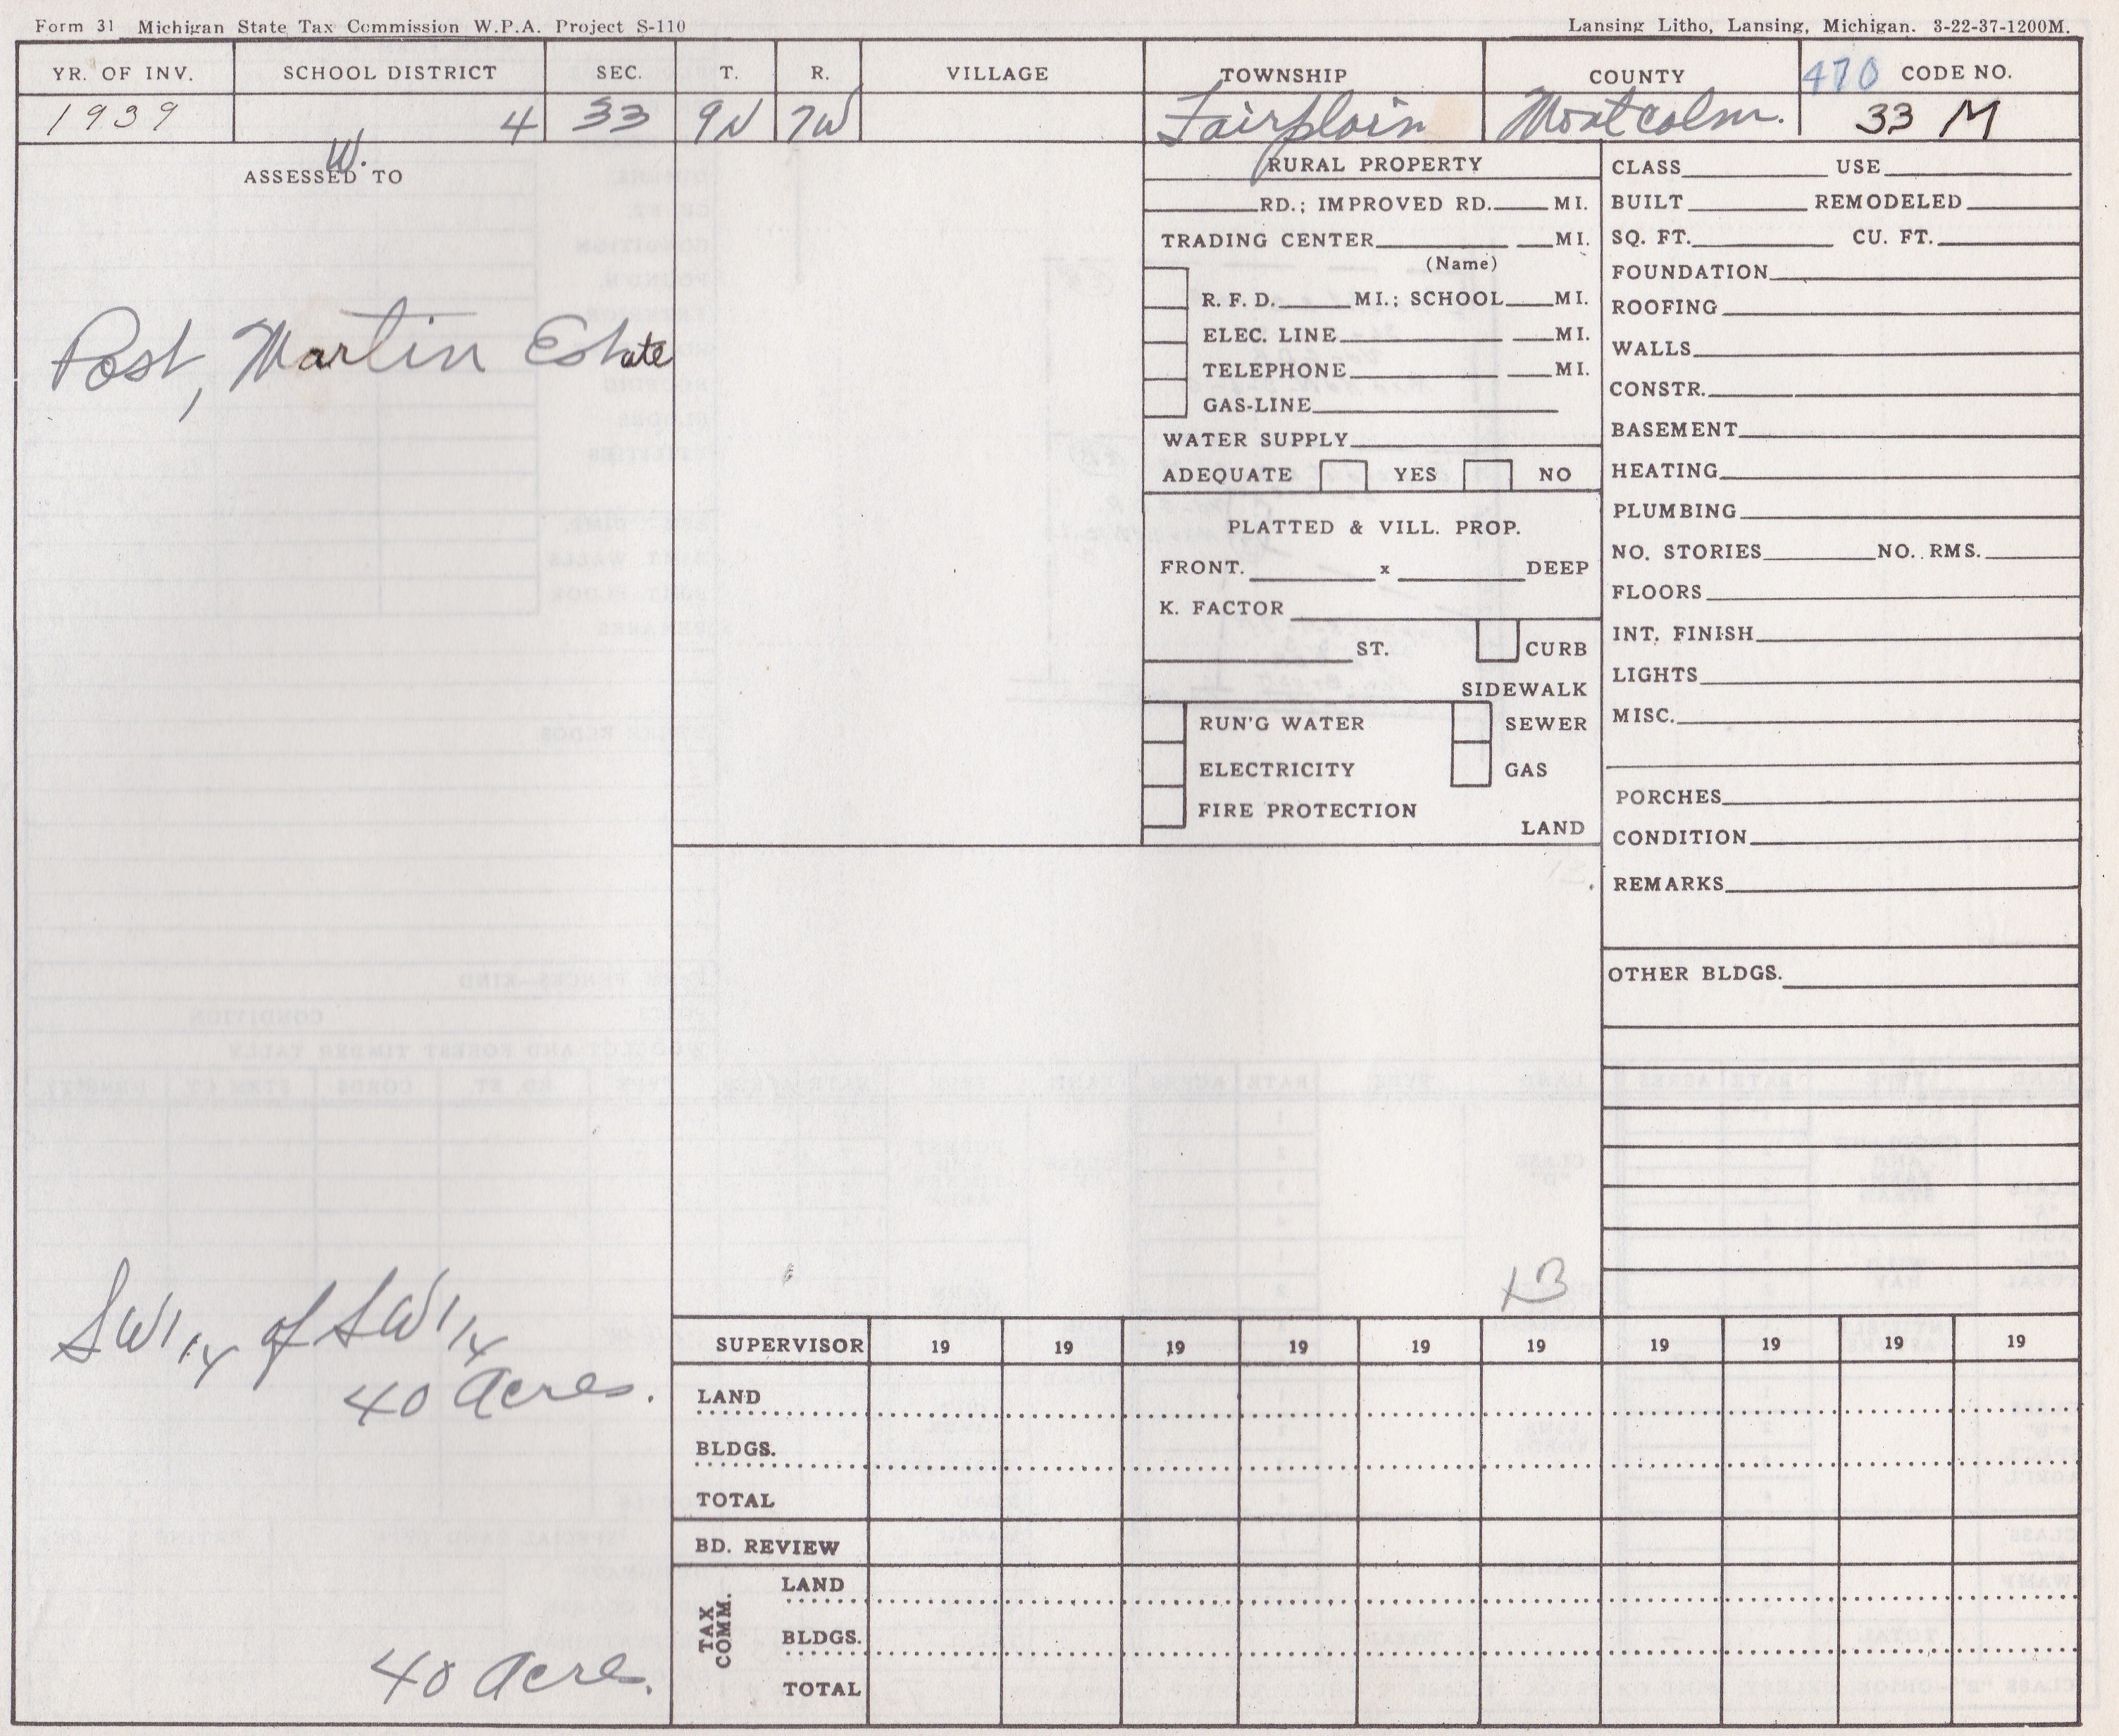 Form 31 Michigan State Tax Commission W.P.A. Project S-110
Lansing Litho, Lansing, Michigan. 3-22-37-1200M.
YR. OF INV. SCHOOL DISTRICT SEC. T. R. VILLAGE TOWNSHIP COUNTY 470 CODE NO.
1939 4 33 9N 7W Fairplain Montcalm. 33 M
W.
ASSESSED TO
Post, Martin Estate
SW 1/4 of SW 1/4
40 Acres.
40 Acre.
RURAL PROPERTY
RD.; IMPROVED RD. MI.
TRADING CENTER MI.
(Name)
R. F. D. MI.; SCHOOL MI.
ELEC. LINE MI.
TELEPHONE MI.
GAS-LINE
WATER SUPPLY
ADEQUATE YES NO
PLATTED & VILL. PROP.
FRONT. x DEEP
K. FACTOR
ST. CURB
SIDEWALK
RUN'G WATER SEWER
ELECTRICITY GAS
FIRE PROTECTION
LAND
CLASS USE
BUILT REMODELED
SQ. FT. CU. FT.
FOUNDATION
ROOFING
WALLS
CONSTR.
BASEMENT
HEATING
PLUMBING
NO. STORIES NO. RMS.
FLOORS
INT. FINISH
LIGHTS
MISC.
PORCHES
CONDITION
REMARKS
OTHER BLDGS.
SUPERVISOR 19 19 19 19 19 19 19 19 19 19
LAND
BLDGS.
TOTAL
BD. REVIEW
TAX COMM.
LAND
BLDGS.
TOTAL